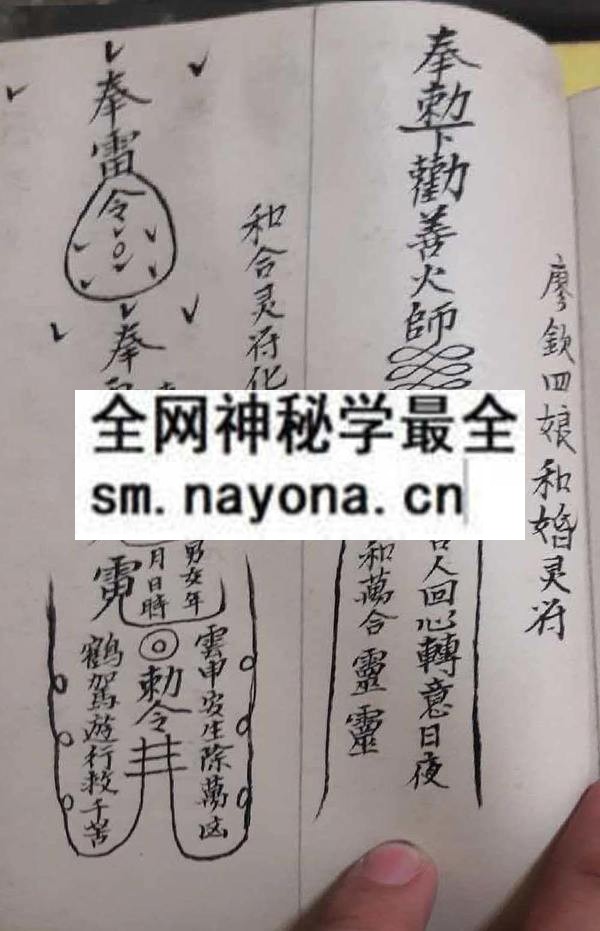 廖欽四娘和婚灵符
奉勅下勸善火師
人回心轉意日夜
和萬合靈靈
和合灵符化
奉雷令
奉
男女年
月日時
勅令
鶴駕遊行救千苦
全网神秘学最全
sm.nayona.cn